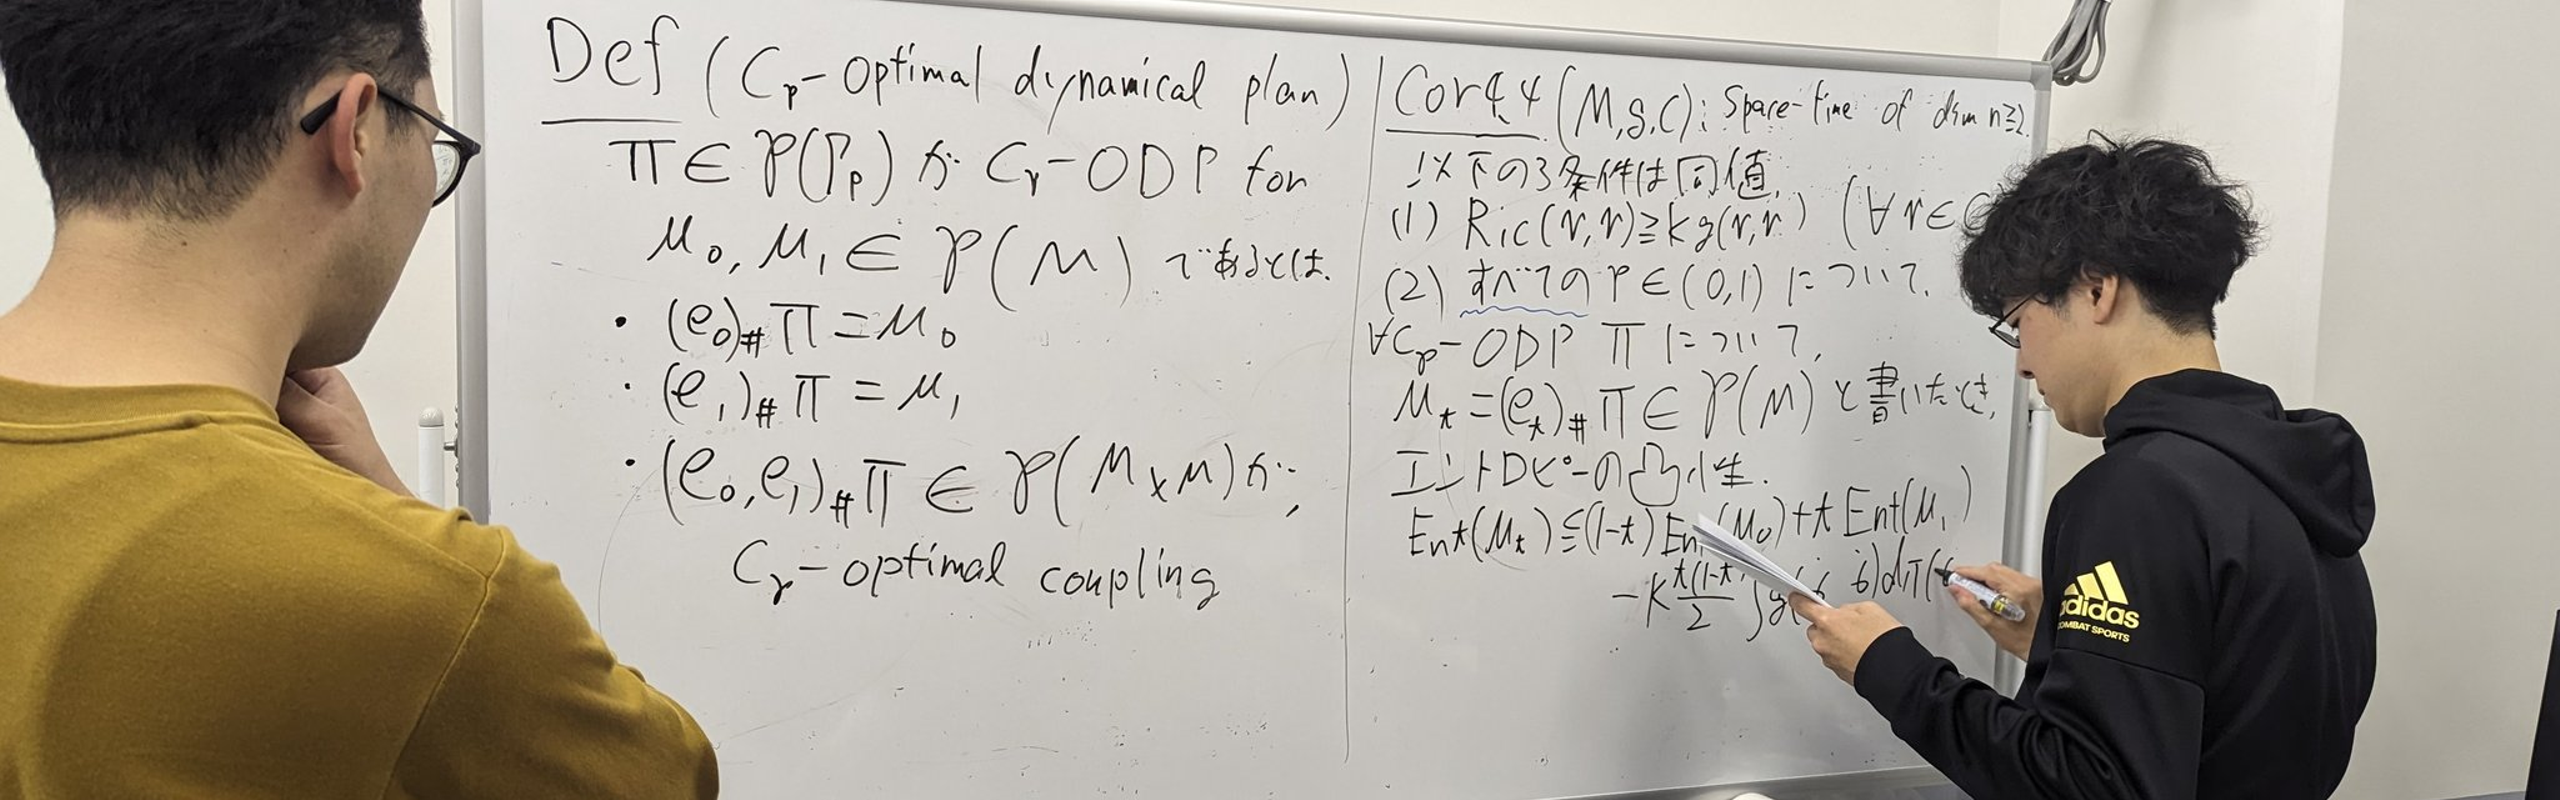 Def (Cp-optimal dynamical plan)
Π ∈ P(Γp) が Cp-ODP for
μ0, μ1 ∈ P(M) であるとは.
・(e0)# Π = μ0
・(e1)# Π = μ1
・(e0, e1)# Π ∈ P(M×M) が,
Cp-optimal coupling
Cor 4.4 (M, g, C): Space-time of dim n≧2.
以下の3条件は同値.
(1) Ric(v, v) ≧ K g(v, v) (∀v ∈ C
(2) すべての P ∈ (0,1) について.
∀Cp-ODP Π について,
μt = (et)# Π ∈ P(M) と書いたとき,
エントロピーの凸性.
Ent(μt) ≦ (1-t) En (μ0) + t Ent(μ1)
-K t(1-t /2 ∫g( )dΠ(
adidas
COMBAT SPORTS